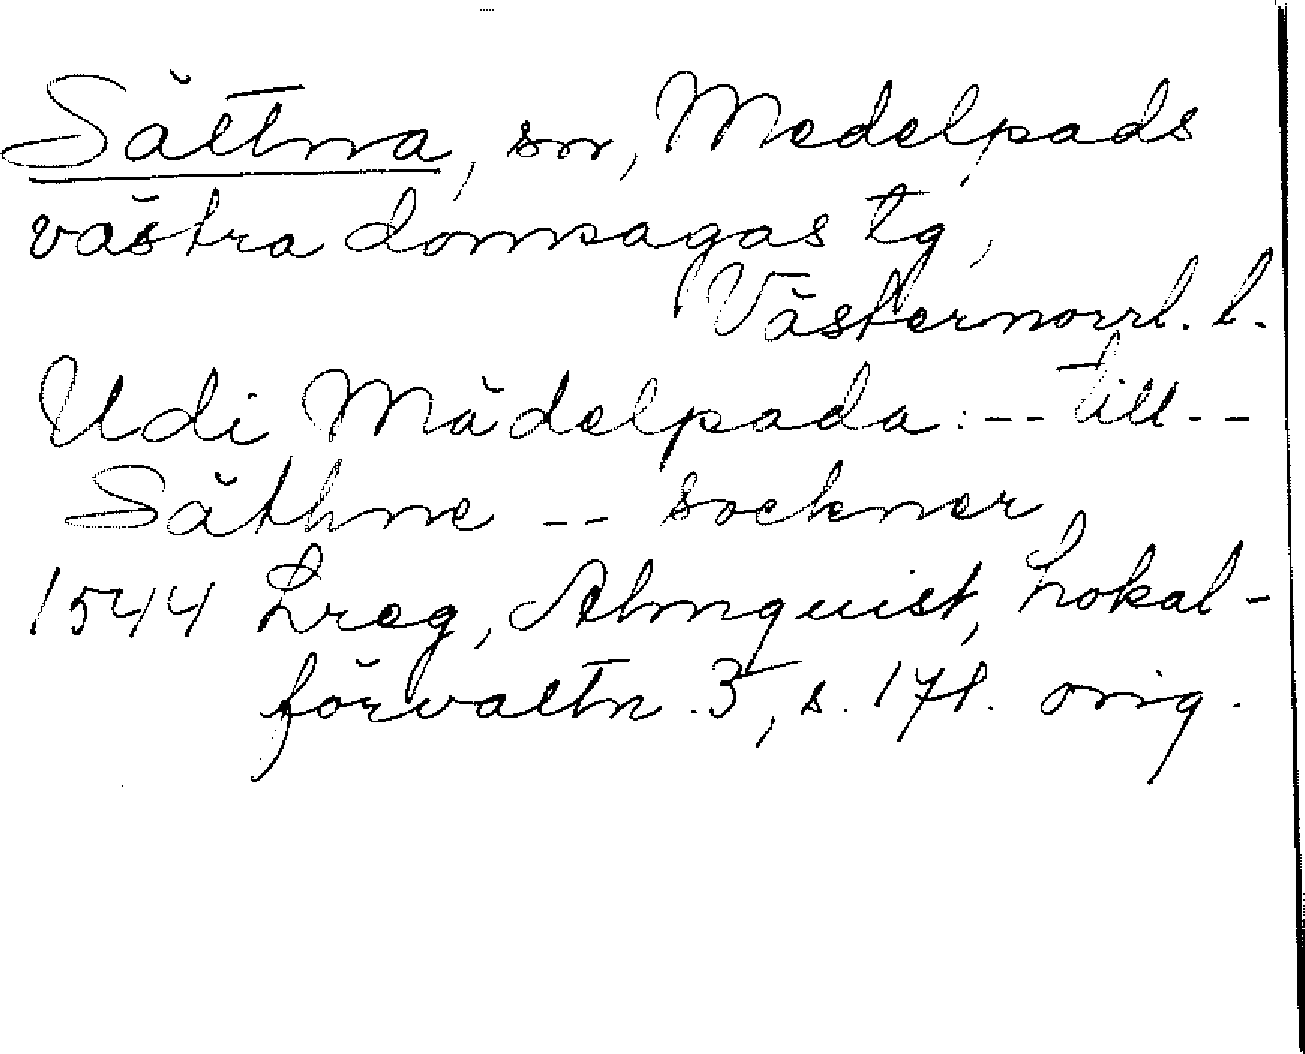 Sättna, sn, Medelpads
västra domsagas tg,
Västernorrl. l.
Udi Mädelpada: -- till --
Säthne -- sockner
1544 Lreg, Almquist, Lokal-
förvaltn. 3, s. 171. orig.